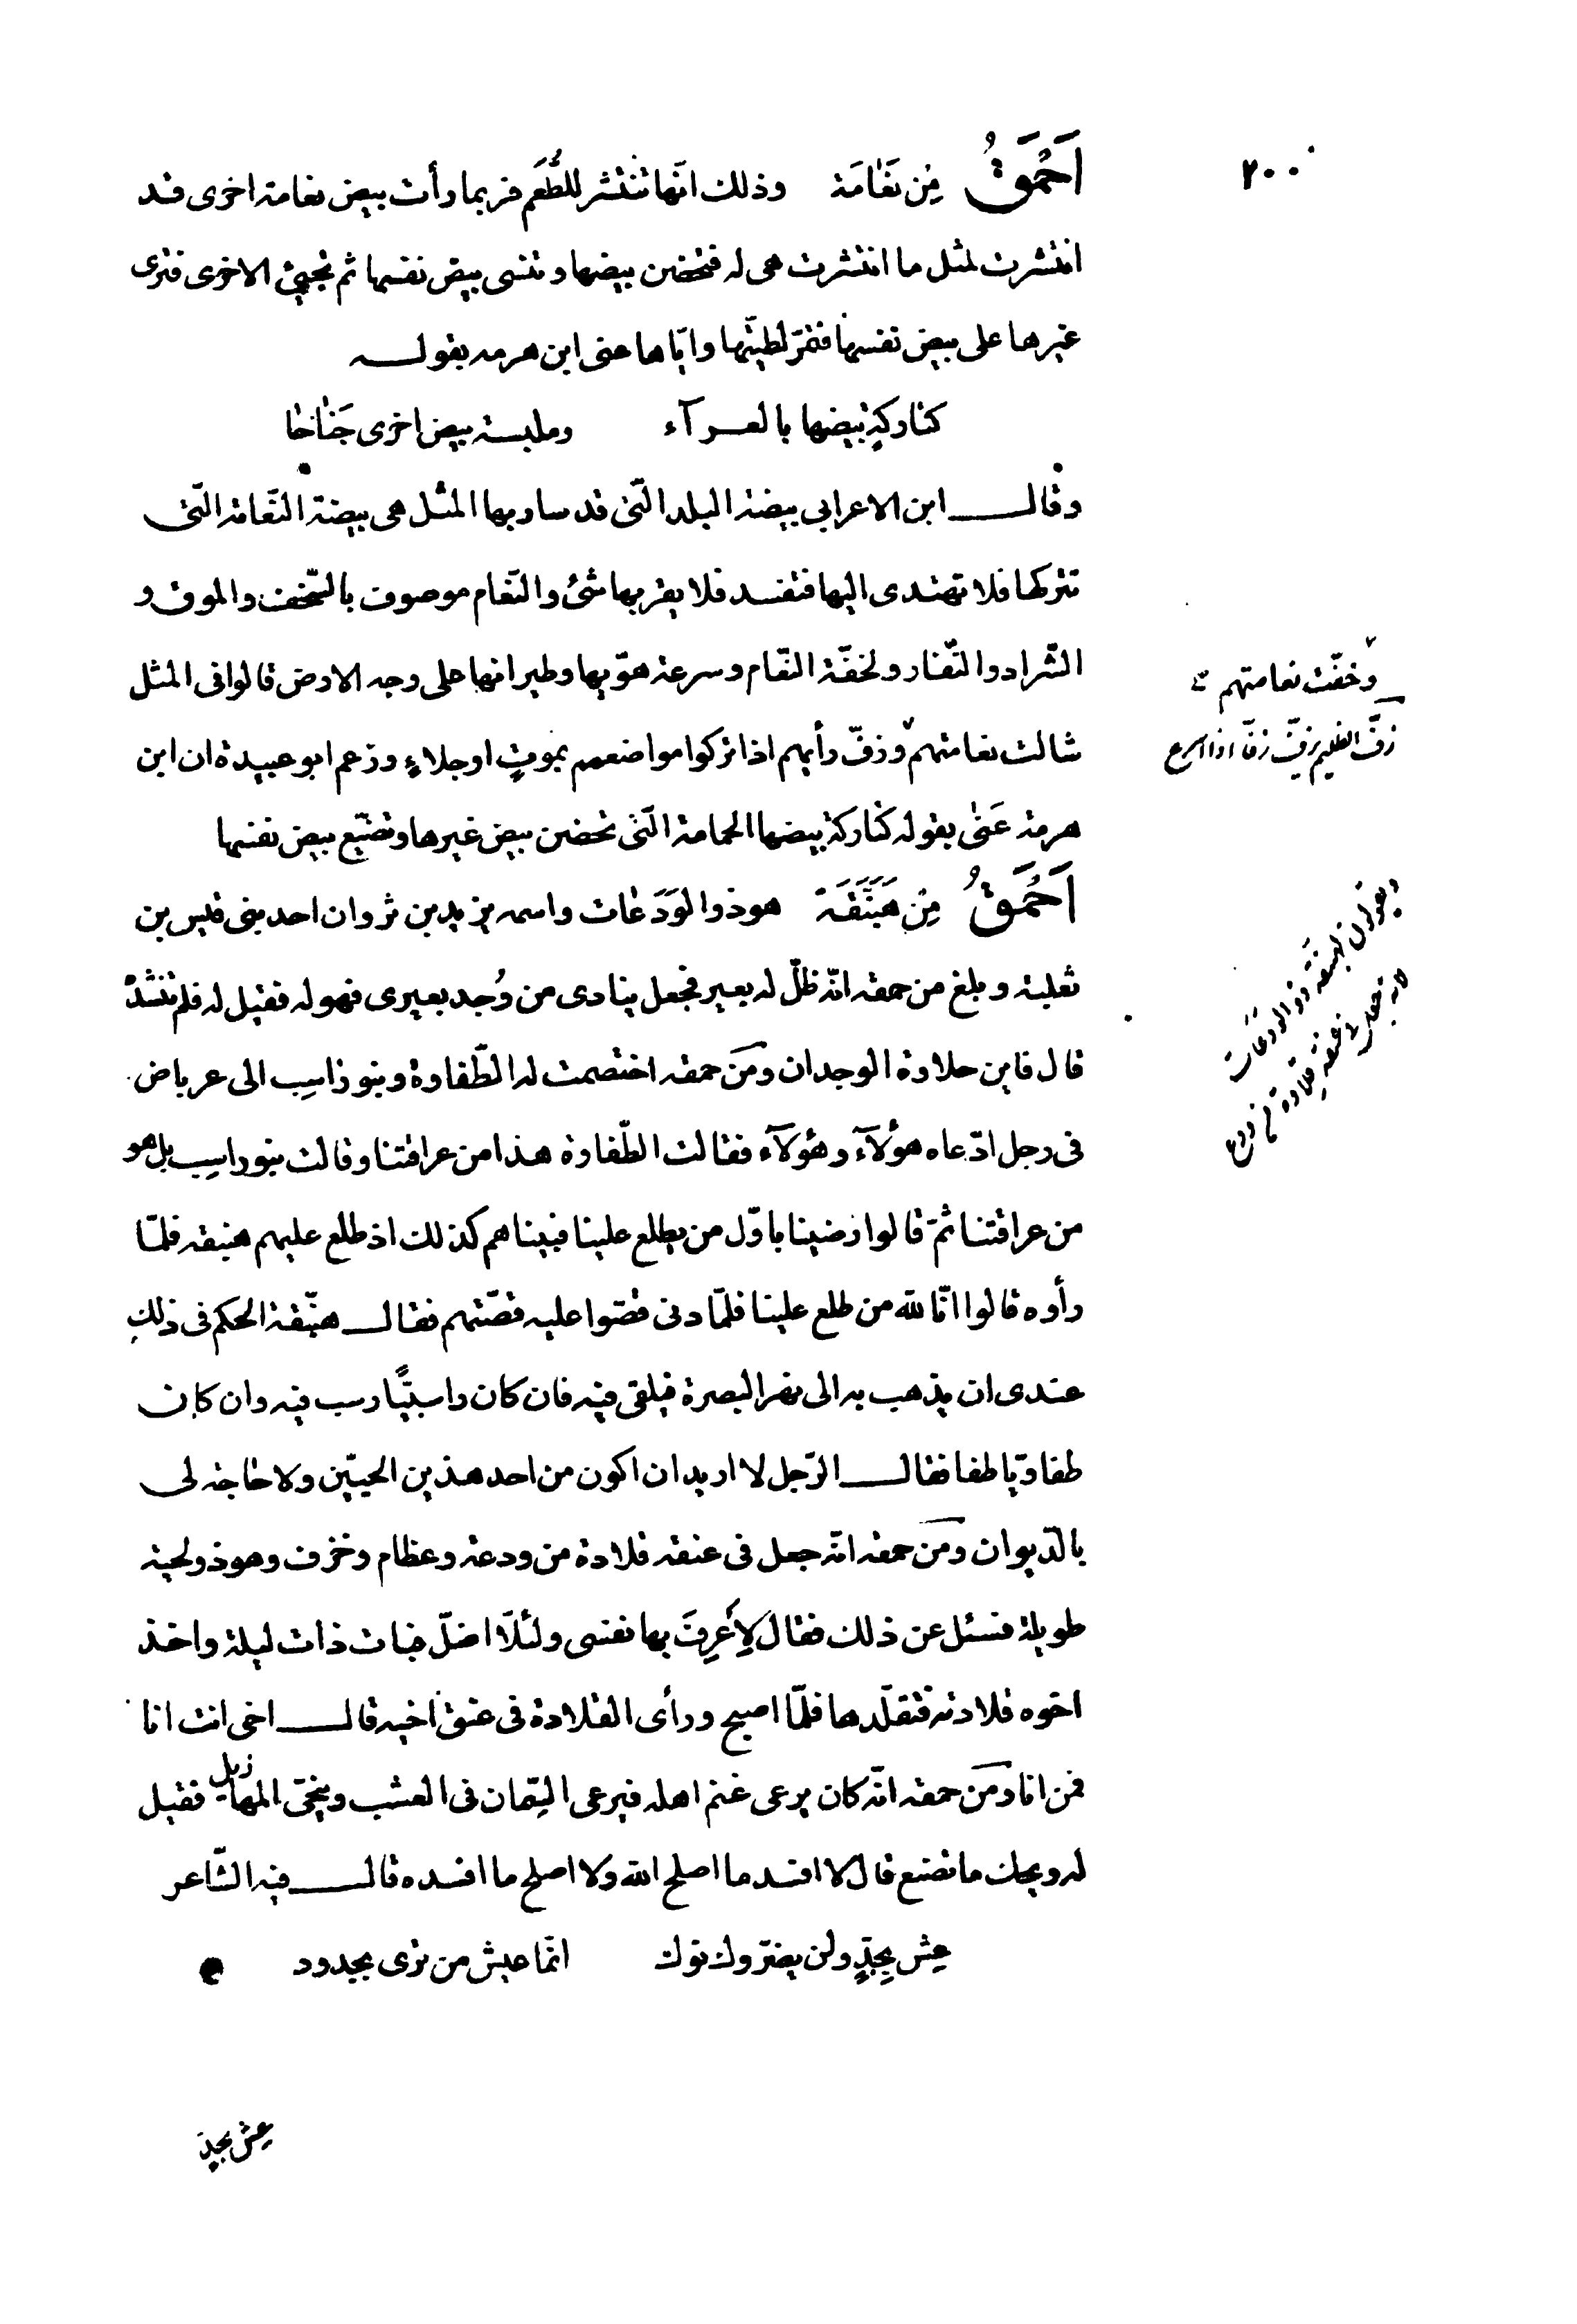 ٢٠٠
اَحْمَقُ مِن نَعَامَة وذلك انّها تنتشر للطُّعَم فربما رأت بيض نعامة اخرى قد
انتشرت لمثل ما انتشرت هى له فتحضن بيضها وتنسى بيض نفسها ثم تجيئ الاخرى فترى
غيرها على بيض نفسها فتمرّ لطيّتها وايّاها عنى ابن هرمه بقولـــه
كتاركةٍ بيضها بالعــرآء وملبسة بيض اخرى جَناحا
وقالـــ ابن الاعرابى بيضة البلد الّتى قد سار بها المثل هى بيضة النّعامة الّتى
تتركها فلا تهتدى اليها فتفسد فلا يقربها شئ والنّعام موصوف بالسّخف والموق و
الشّراد والنّفار ولخفّة النعّام وسرعة هوّيها وطيرانها على وجه الارض قالوا فى المثل
شالت نعامتهم وزفّ رأيهم اذا تركوا مواضعهم بموتٍ او جلاءٍ وزعم ابو عبيدة ان ابن
وخفّت نعامتهم
زفّ الظليم يزفّ زفّا اذا اسرع
هرمة عَنى بقوله كتاركة بيضها الحمامة الّتى تحضن بيض غيرها وتضيّع بيض نفسها
اَحْمَقُ مِن هَبَنَّقَة هو ذو الوَدَعات واسمه يزيد بن ثروان احد بنى قيس بن
ثعلبة وبلغ من حمقه انّه ظلّ له بعير فجعل ينادى من وُجد بعيرى فهو له فقيل له فلم تنشدْ
ويقولون لهبنقة ذو الودَعات
لانه جعل فى عنقه قلادة من ودع
قال فاين حلاوة الوجدان ومَن حمقه اختصمت له الطّفاوة وبنو راسِب الى عرباض
فى رجل ادّعاه هؤلآء وهؤلآء فقالت الطّفاوة هذا من عرافتنا وقالت بنو راسِب بل هو
من عرافتنا ثمّ قالوا رضينا باوّل من يطلع علينا فبينا هم كذلك اذ طلع عليهم هبنقه فلمّا
رأوه قالوا انّا لله من طلع علينا فلمّا دنى قصّوا عليه قصّتهم فقالـــ هبنّقة الحكم فى ذلك
عندى ان يذهب به الى نهر البصرة فيلقى فيه فان كان راسبيًّا رسب فيه وان كان
طفاويّا طفا فقالـــ الرّجل لا اريد ان اكون من احد هذين الحيّين ولا حاجة لى
بالدّيوان ومَن حمقه انّه جعل فى عنقه قلادة من ودعة وعظام وخزف وهو ذو لحية
طويلة فسئل عن ذلك فقال لِأَعرِفَ بها نفسى ولئلّا اضلّ فبات ذات ليلة واخذ
اخوه قلادته فتقلّدها فلمّا اصبح ورأى القلادة فى عنق اخيه قالـــ اخى انت انا
فمن انا ومَن حمقه انّه كان يرعى غنم اهله فيرعى السّمان فى العشب وينحّى المهازيل فقيل
له ويحك ما تصنع قال لا افسد ما اصلح الله ولا اصلح ما افسده قالـــ فيه الشّاعر
عِش بِجدٍّ ولن يضرّوك نوك انّما عيش من ترى بجدود
عِش بجدٍّ